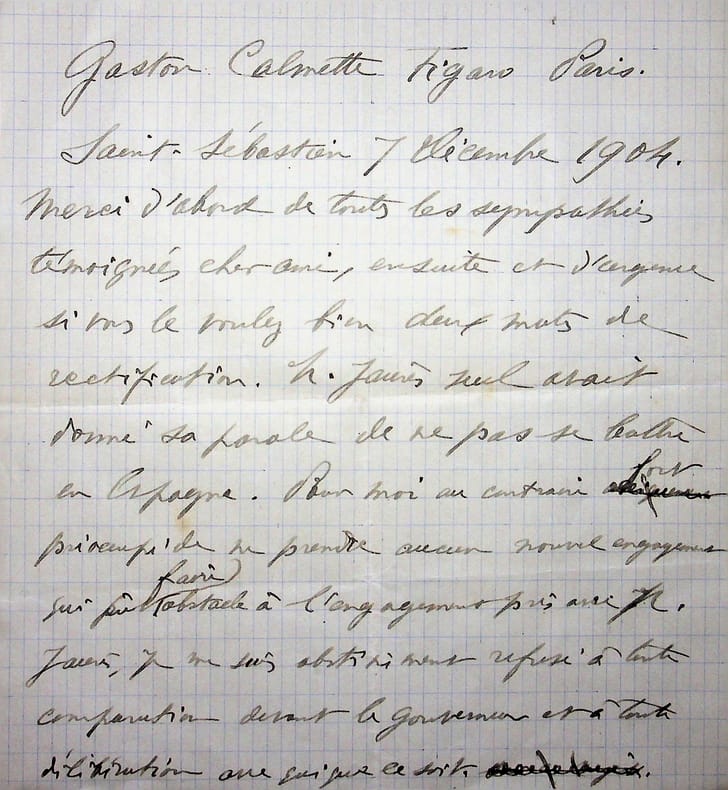 Gaston Calmette Figaro Paris.
Saint-Sébastien 7 Décembre 1904.
Merci d'abord de toutes les sympathies
témoignées cher ami, ensuite et d'urgence
si vous le voulez bien deux mots de
rectification. M. Jaurès seul avait
donné sa parole de ne pas se battre
en Espagne. Pour moi au contraire fort
préoccupé de ne prendre aucun nouvel engagement
qui pût faire obstacle à l'engagement pris avec M.
Jaurès, je me suis obstinément refusé à toute
comparution devant le Gouverneur et à toute
délibération avec qui que ce soit.